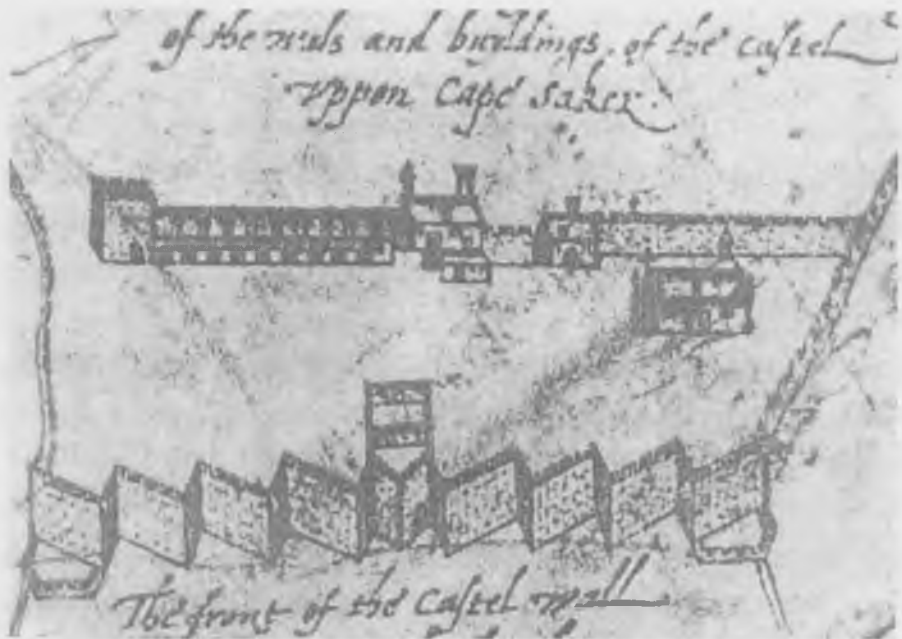 of the wals and buildings. of the castel
uppon Cape Saker.
The front of the Castel wall